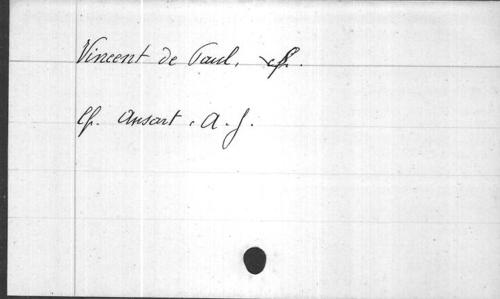 Vincent de Paul,
cf. Ansart, A. J.